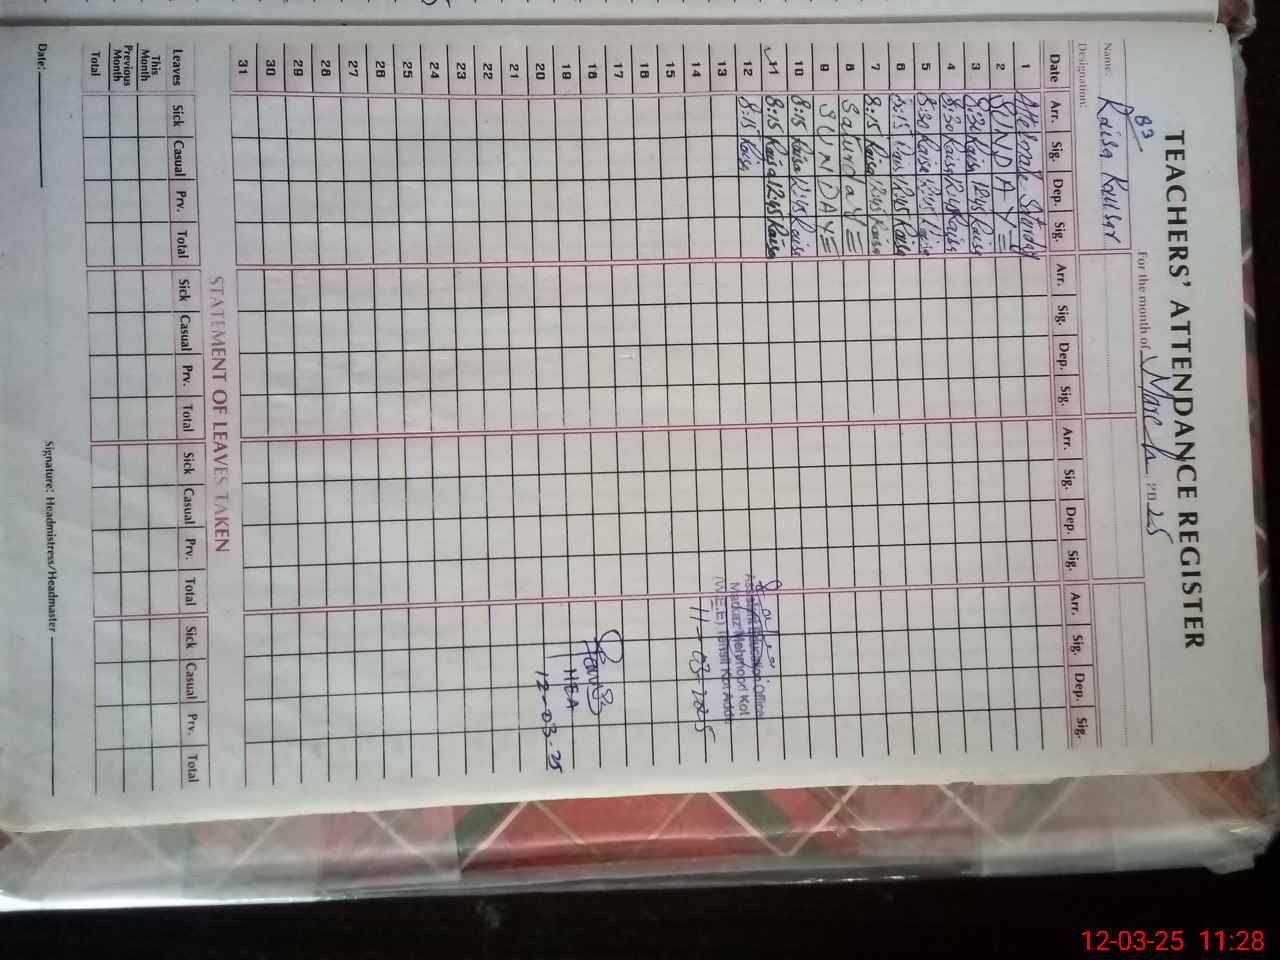 TEACHERS' ATTENDANCE REGISTER
83
Name: Raisa Kausar
For the month of March 2025
Designation:
Date Arr. Sig. Dep. Sig. Arr. Sig. Dep. Sig. Arr. Sig. Dep. Sig. Arr. Sig. Dep. Sig.
1
2 SUNDAY
3 8:30 Raisa 12:45 Raisa
4 8:30 Raisa 12:45 Raisa
5 8:30 Raisa 12:45 Raisa
6 8:15 Raisa 12:45 Raisa
7 8:15 Raisa 12:45 Raisa
8 Saturday
9 SUNDAY
10 8:15 Raisa 12:45 Raisa
11 8:15 Raisa 12:45 Raisa
12 8:15 Raisa
Assistant Education Officer
Markaz Mehmood Kot
(W.E.E) Tehsil Kot Addu
11-03-2025
13
14
15
16
17
18
19
20
HEA
12-03-25
21
22
23
24
25
26
27
28
29
30
31
STATEMENT OF LEAVES TAKEN
Leaves Sick Casual Prv. Total Sick Casual Prv. Total Sick Casual Prv. Total Sick Casual Prv. Total
This Month
Previous Month
Total
Date:
Signature: Headmistress/Headmaster
12-03-25 11:28